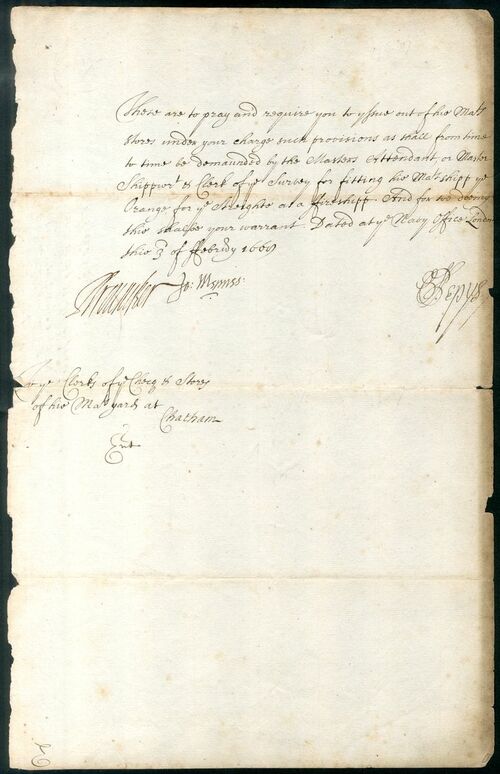 These are to pray and require you to yssue out of his Ma:ts
stores under your charge such provisions as shall from time
to time be demaunded by the Masters Attendant or Master
Shippwr:t & Clerk of ye Survey for fitting his Ma:ts shipp ye
Orange for ye Streights as a fireshipp. And for so doeing
this shalbe your warrant Dated at ye Navy Office London
this 3 of ffebr:ry 1669
Brouncker Jo: Mennes:
S Pepys
To ye Clerks of ye Checq & Stores
of his Ma:ts yard at
Chatham
Ent